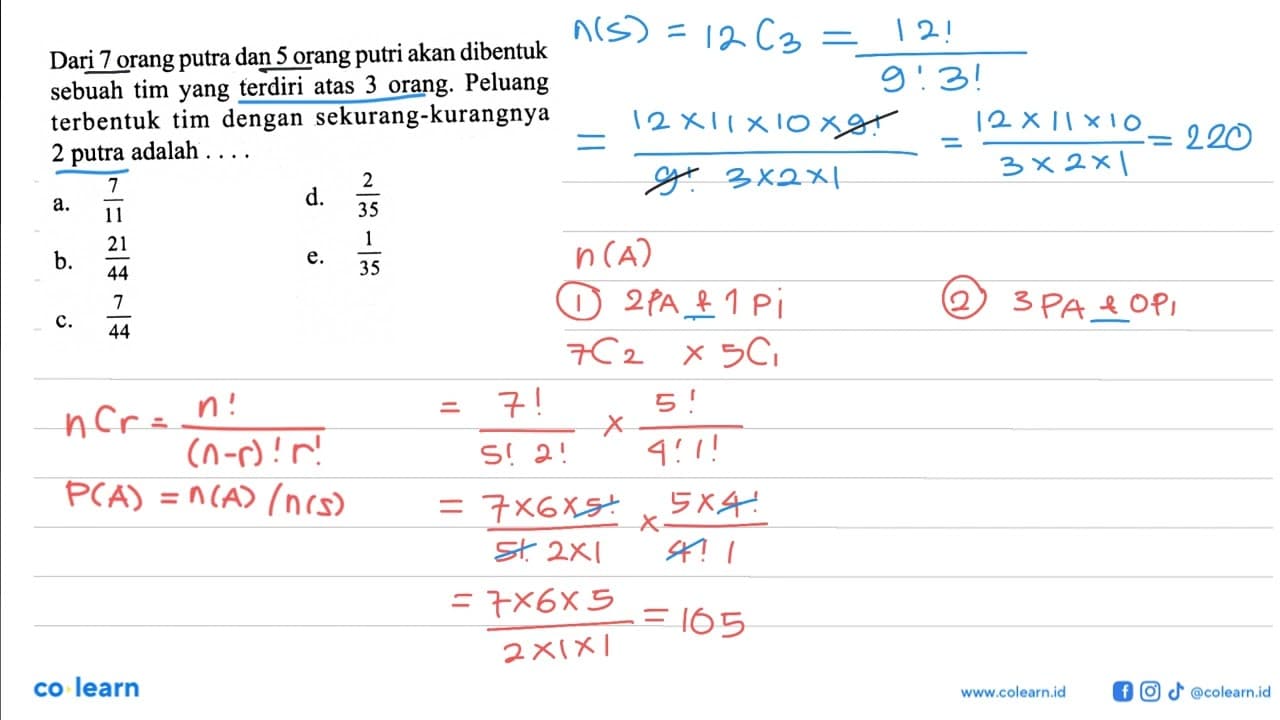 Dari 7 orang putra dan 5 orang putri akan dibentuk
sebuah tim yang terdiri atas 3 orang. Peluang
terbentuk tim dengan sekurang-kurangnya
2 putra adalah . . . .
a. 7/11
b. 21/44
c. 7/44
d. 2/35
e. 1/35
n(S) = 12C3 = 12! / 9! 3!
= 12×11×10×9! / 9! 3×2×1 = 12×11×10 / 3×2×1 = 220
n(A)
① 2PA & 1 Pi
7C2 × 5C1
= 7! / 5! 2! × 5! / 4! 1!
= 7×6×5! / 5! 2×1 × 5×4! / 4! 1
= 7×6×5 / 2×1×1 = 105
② 3PA & 0Pi
nCr = n! / (n-r)! r!
P(A) = n(A) / n(S)
co learn
www.colearn.id
@colearn.id